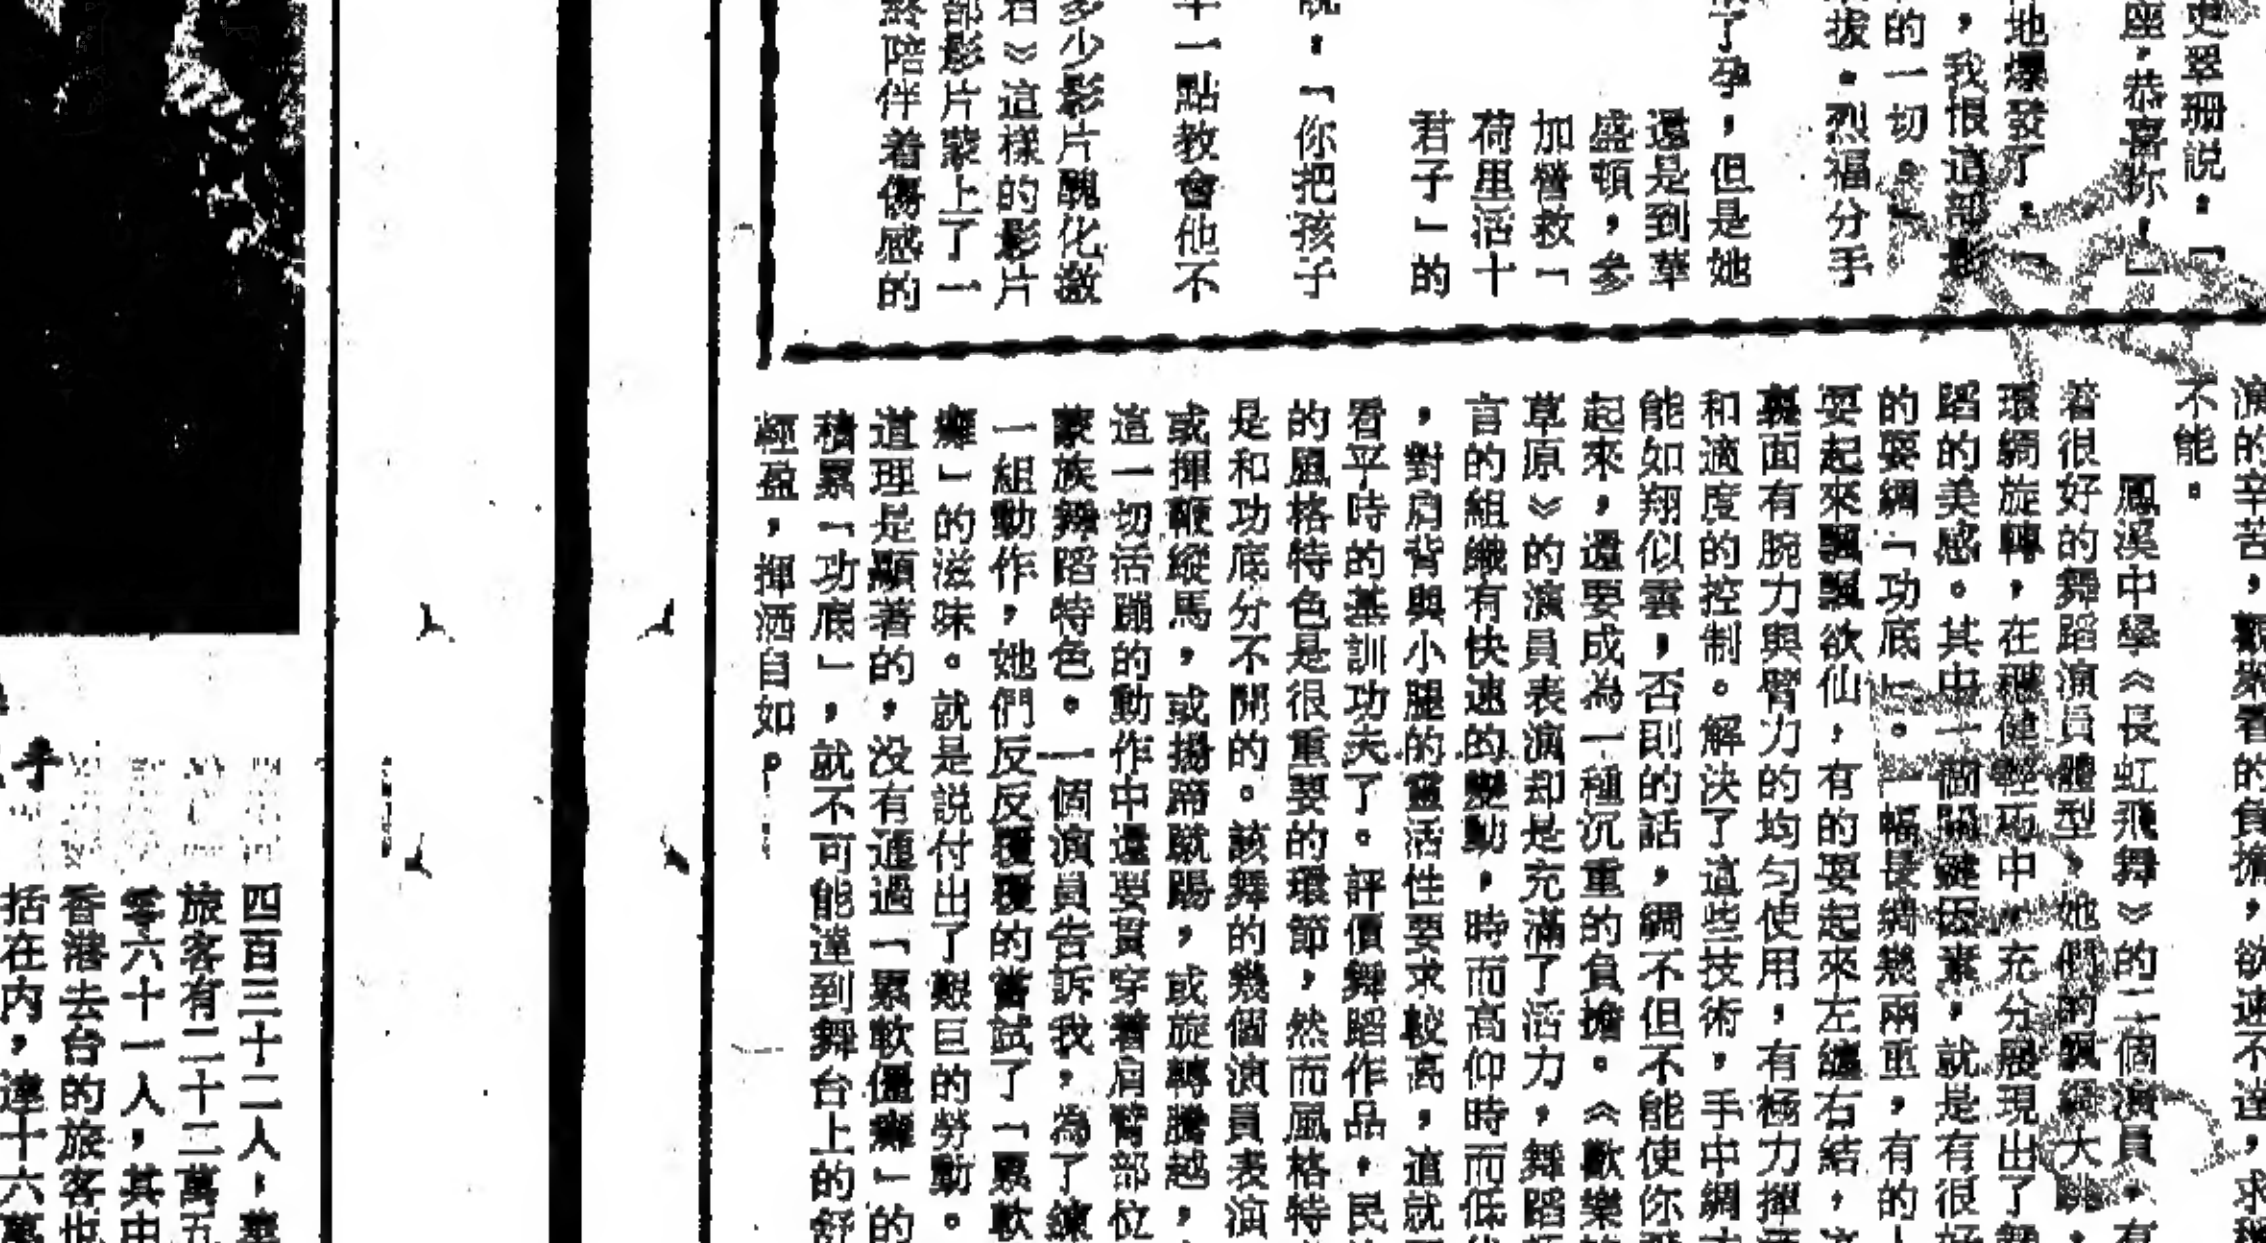 史翠珊説。「
座，恭喜你，」
地爆發了。「
，我恨這部影
的一切。」
拔。烈福分手
了孕，但是她
還是到華
盛頓，參
加營救「
荷里活十
君子」的
説。「你把孩子
一點教會他不
多少影片醜化激
君》這樣的影片
部影片蒙上了一
終陪伴着傷感的
演的辛苦，觀衆者的負擔，欲速不達，求
不能。
鳳溪中學《長虹飛舞》的二個演員，有
着很好的舞蹈演員體型，她們的飄綢大跳，
環綢旋轉，在穩健輕巧中，充分展現出了舞
蹈的美感。其中一個關鍵因素，就是有很好
的耍綢「功底」。一幅長綢幾兩重，有的人
耍起來飄飄欲仙，有的耍起來左纏右結，這
裏面有腕力與臂力的均勻使用，有極力揮
和適度的控制。解決了這些技術，手中綢才
能如翔似雲，否則的話，綢不但不能使你飛
起來，還要成為一種沉重的負擔。《歡樂的
草原》的演員表演却是充滿了活力，舞蹈語
言的組織有快速的變動，時而高仰時而低
，對肩背與小腿的靈活性要求較高，這就要
看平時的基訓功夫了。評價舞蹈作品，民
的風格特色是很重要的環節，然而風格特
是和功底分不開的。該舞的幾個演員表演
或揮鞭縱馬，或揚蹄蹴踢，或旋轉騰越，
這一切活蹦的動作中還要貫穿着肩臂部位
蒙族舞蹈特色。一個演員告訴我，為了練
一組動作，她們反反覆覆的嘗試了「累軟
癱」的滋味。就是説付出了艱巨的勞動。
道理是顯著的，没有通過「累軟僵癱」的
積累「功底」，就不可能達到舞台上的舒
輕盈，揮洒自如。
手
四百三十二人，華
旅客有二十二萬五
零六十一人，其中
香港去台的旅客也
括在内，達十六萬